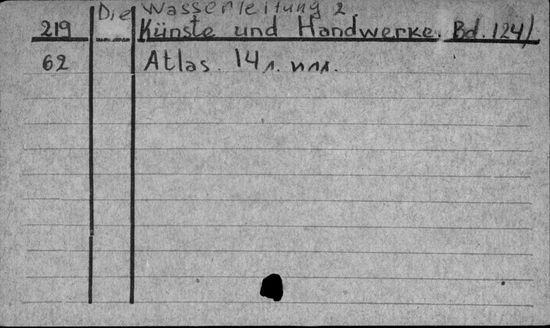 Die Wasserleitung 2
219 Künste und Handwerke. Bd. 124/
62 Atlas. 14